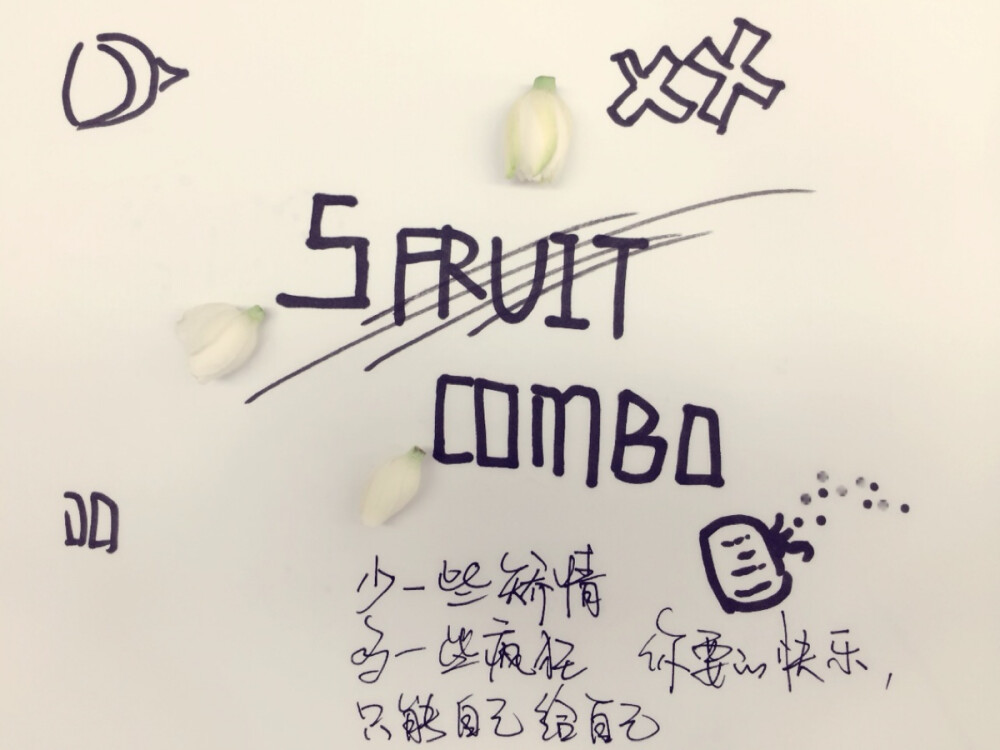 5 FRUIT
COMBO
少一些矫情
多一些疯狂 你要的快乐,
只能自己给自己